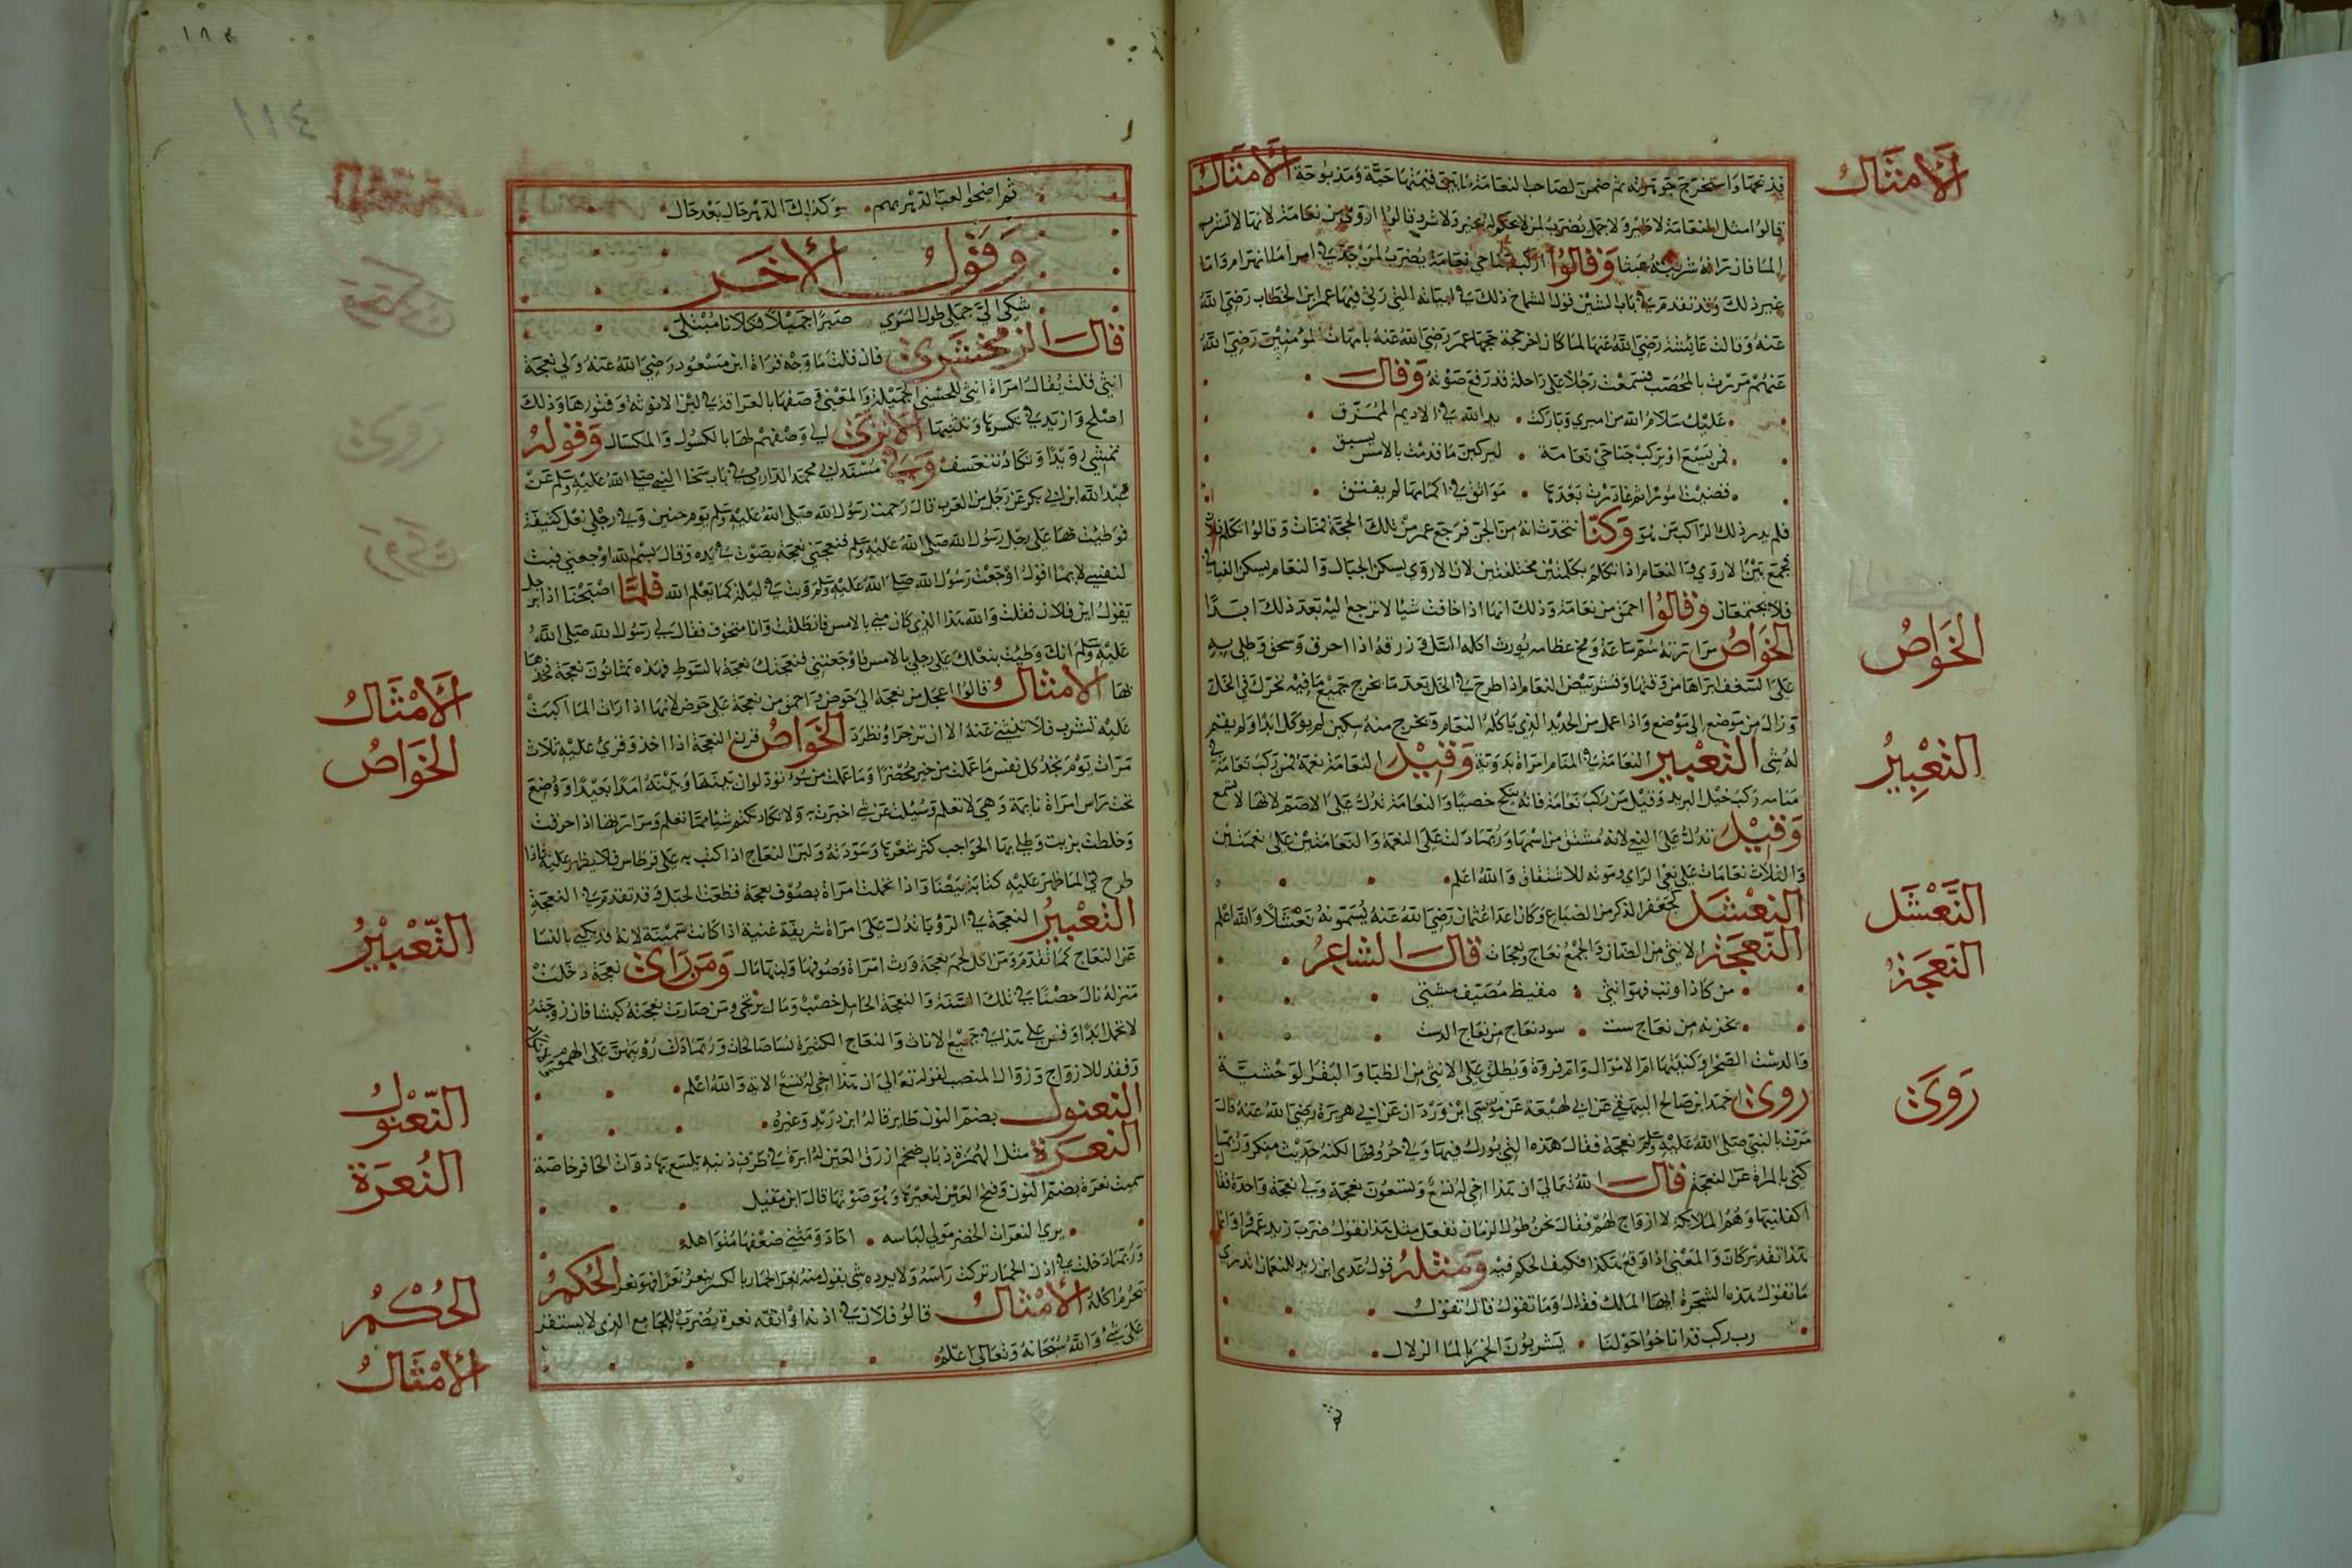 الأمثال
قد نحها واستخرج جوهرته ثم ضمن لصاحب النعامة ما بين قيمتها حية ومذبوحة الأمثال
قالوا مثل النعامة لا طير ولا جمل يضرب لمن لا يحكم له بخير ولا شر وقالوا اروى من نعامة لانها لا تشرب
الما فان تراه شربته عبثا وقالوا اركب جناحي نعامة يضرب لمن جد في امر اما انهزام واما
غير ذلك وقد تقدم في باب الشين قول الشماخ ذلك في ابياته التي رثى فيها عمر ابن الخطاب رضي الله
عنه وقالت عائشة رضي الله عنها لما كان اخر حجة حجها عمر رضي الله عنه بامهات المومنين رضي الله
عنهم مررت بالمحصب فسمعت رجلا على راحلة قد رفع صوته وقال
عليك سلام الله من امير وباركت • يد الله في الاديم الممزق
فمن يسع او يركب جناحي نعامة • ليدركن ما قدمت بالامس يسبق
قضيت امورا ثم غادرت بعدها • بوائق في اكمامها لم يفتق
فلم يدر ذلك الراكب من هو وكنا نتحدث انه من الجن فرجع عمر من تلك الحجة فمات وقالوا تكلم فلان
فجمع بين الاروى والنعام اذا تكلم بكلمتين مختلفتين لان الاروى يسكن الجبال والنعام يسكن الفيافي
فلا يجتمعان وقالوا احمق من نعامة وذلك انها اذا خافت شيا لا ترجع اليه بعد ذلك ابدا
الخواص مرارته سم ساعة ومخ عظامه يورث اكله السل وزرقه اذا احرق وسحق وطلي به
على السعف ابراها من وقتها وقشر بيض النعام اذا طرح في الخل بعد ما يخرج جميع ما فيه تحرك في الخل
وزال من موضع الى موضع واذا عمل من الحديد الذي ياكله النعام ويخرج منه سكين لم يوكل ابدا ولم يقم
له شى التعبير النعامة في المنام امراة بدوية وقيل النعامة نعمة فمن ركب نعامة في
منامه ركب خيل البريد وقيل من ركب نعامة فانه ينكح خصيا والنعامة تدل على الاصم لانها لا تسمع
وقيل تدل على النعي لانه مشتق من اسمها وربما دلت على النعمة والنعامتين على نعمتين
والثلاث نعامات على نعى الراي وموته للاشتقاق والله اعلم
النعثل كجعفر الذكر من الضباع وكان اعدا عثمان رضي الله عنه يسمونه نعثلا والله اعلم
النعجة الانثى من الضان والجمع نعاج ونعجات قال الشاعر
من كان ذا وبت فهوا بتي • مقيظ مصيف مشتي
نخذته من نعاج ست • سود نعاج من نعاج الدست
والدست الصحرا وكنيتها ام الاموال وام فروة ويطلق على الانثى من الظبا والبقر الوحشية
روى احمد ابن صالح السهمي عن ابي لهيعة عن موسى ابن وردان عن ابي هريرة رضي الله عنه قال
مرت بالنبي صلى الله عليه وسلم نعجة فقال هذه التي بورك فيها وفي خروفها لكنه حديث منكر وربما
كني بالمراة عن النعجة قال الله تعالى ان هذا اخي له تسع وتسعون نعجة ولي نعجة واحدة فقال
اكفلنيها وهم الملائكة لا ازواج لهم فقال نحن طول الزمان نفعل مثل هذا نقول ضرب زيد عمرا وانما
هذا تقدير كان والمعنى اذا وقع هكذا فكيف الحكم فيه ومثله قول عدى ابن زيد للنعمان اتدري
ما تقول هذه الشجرة ايها الملك فقال وما تقول قال تقول
رب ركب قد اناخوا حولنا • يشربون الخمر بالما الزلال
ثم
الخواص
التعبير
النعثل
النعجة
روى
ثم اضحوا لعب الدهر بهم • وكذاك الدهر حال بعد حال
وقول الأخر
شكى الي جملي طول السرى • صبرا جميلا فكلانا مبتلى
قال الزمخشري فان قلت ما وجه قراة ابن مسعود رضي الله عنه ولي نعجة
انثى قلت يقال امراة انثى للحسنى الجميلة والمعنى وصفها بالعراقة في لين الانوثة وفتورها وذلك
اصلح وازيد في تكسرها وتثنيها الا ترى الى وصفهم لها بالكسول والمكسال وقوله
تمشي رويدا وتكاد تنغسف وفي مسند ابي محمد الدارمي في باب سخا النبي صلى الله عليه وسلم عن
عبد الله ابن ابي بكر عن رجل من العرب قال زحمت رسول الله صلى الله عليه وسلم يوم حنين وفي رجلي نعل كثيفة
فوطيت بها على رجل رسول الله صلى الله عليه وسلم فنعجني نعجة بصوت في يده وقال بسم الله اوجعتني فبت
لنفسي لايما اقول اوجعت رسول الله صلى الله عليه وسلم وبت في ليلة كما يعلم الله فلما اصبحنا اذا رجل
يقول اين فلان فقلت والله هذا الذي كان مني بالامس فانطلقت وانا متخوف فقال لي رسول الله صلى الله
عليه وسلم انك وطيت بنعلك على رجلي بالامس فاوجعتني فنعجتك نعجة بالسوط فهذه ثمانون نعجة فخذها
بها الأمثال قالوا اعجل من نعجة الى حوض واحمق من نعجة على حوض لانها اذا رات الما اكبت
عليه تشرب فلا تنثني عنه الا ان تزجر او تطرد الخواص قرن النعجة اذا اخذ وقرئ عليه ثلاث
مرات يوم تجد كل نفس ما عملت من خير محضرا وما عملت من سوء تود لوان بينها وبينه امدا بعيدا ووضع
تحت راس امراة نايمة وهي لا تعلم وسئلت عن شي اخبرت به ولا تكاد تكتم شيا مما تعلم ومرارتها اذا احرقت
وخلطت بزيت وطلي بها الحواجب كثر شعرها وسودته ولبن النعاج اذا كتب به على قرطاس فلا يظهر عليه فاذا
طرح في الما ظهر عليه كتابة بيضا واذا تحملت امراة بصوف نعجة قطعت الحبل وقد تقدم في النعجة
التعبير النعجة في الرؤيا تدل على امراة شريفة غنية اذا كانت سمينة لانه قد كني بالنسا
عن النعاج كما تقدم ومن اكل لحم نعجة ورث امراة وصوفها ولبنها مال ومن راى نعجة دخلت
منزله نال خصبا في تلك السنة والنعجة الحامل خصب ومال يرتجى ومن صارت نعجته كبشا فان زوجته
لا تحمل ابدا وقس على هذا في جميع الاناث والنعاج الكثيرة نسا صالحات وربما دلت رؤيتهن على الهموم
وفقد للازواج وزوال المنصب لقوله تعالى ان هذا اخي له تسع الاية والله اعلم
النعبول بضم النون طاير قاله ابن دريد وغيره
النعرة مثل الهمزة ذباب ضخم ازرق العين له ابرة في طرف ذنبه يلسع بها ذوات الحافر خاصة
سميت نعرة بضم النون وفتح العين لنعيرها وهو صوتها قال ابن مقبل
يرى النعرات الخضر حولي لباسه • احاد ومثنى ضعفها متواهله
وربما دخلت في اذن الحمار تركت راسه ولا يرده شى يقول منه نعر الحمار بالكسر ينعر نعرا فهو نعر الحكم
تحرم اكله الأمثال قالوا فلان في اذنه او انفه نعرة يضرب للجامع الذي لا يستقر
على شئ والله سبحانه وتعالى اعلم
الأمثال
الخواص
التعبير
النعبول
النعرة
الحكم
الأمثال